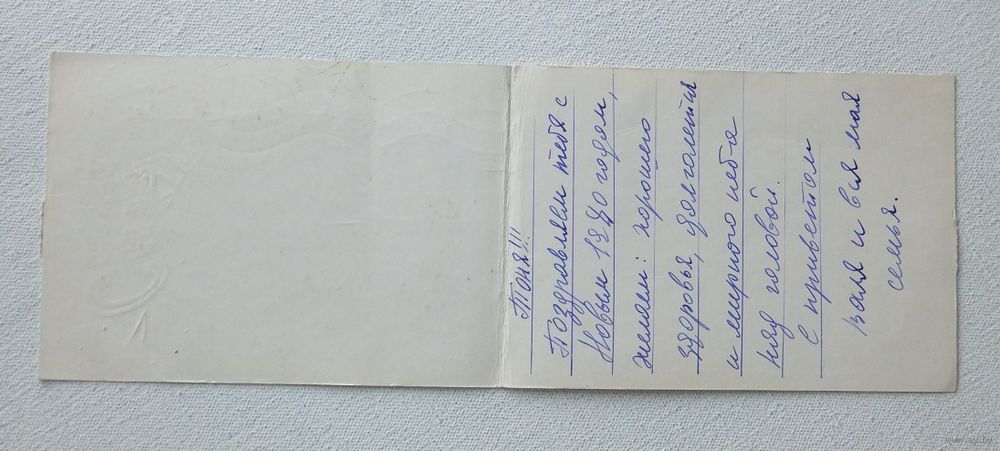 Тоня!!!
Поздравляем тебя с
Новым 1980 годом,
желаем: хорошего
здоровья, долголетия
и мирного неба
над головой.
С приветом
валя и вся моя
семья.
www.ay.by